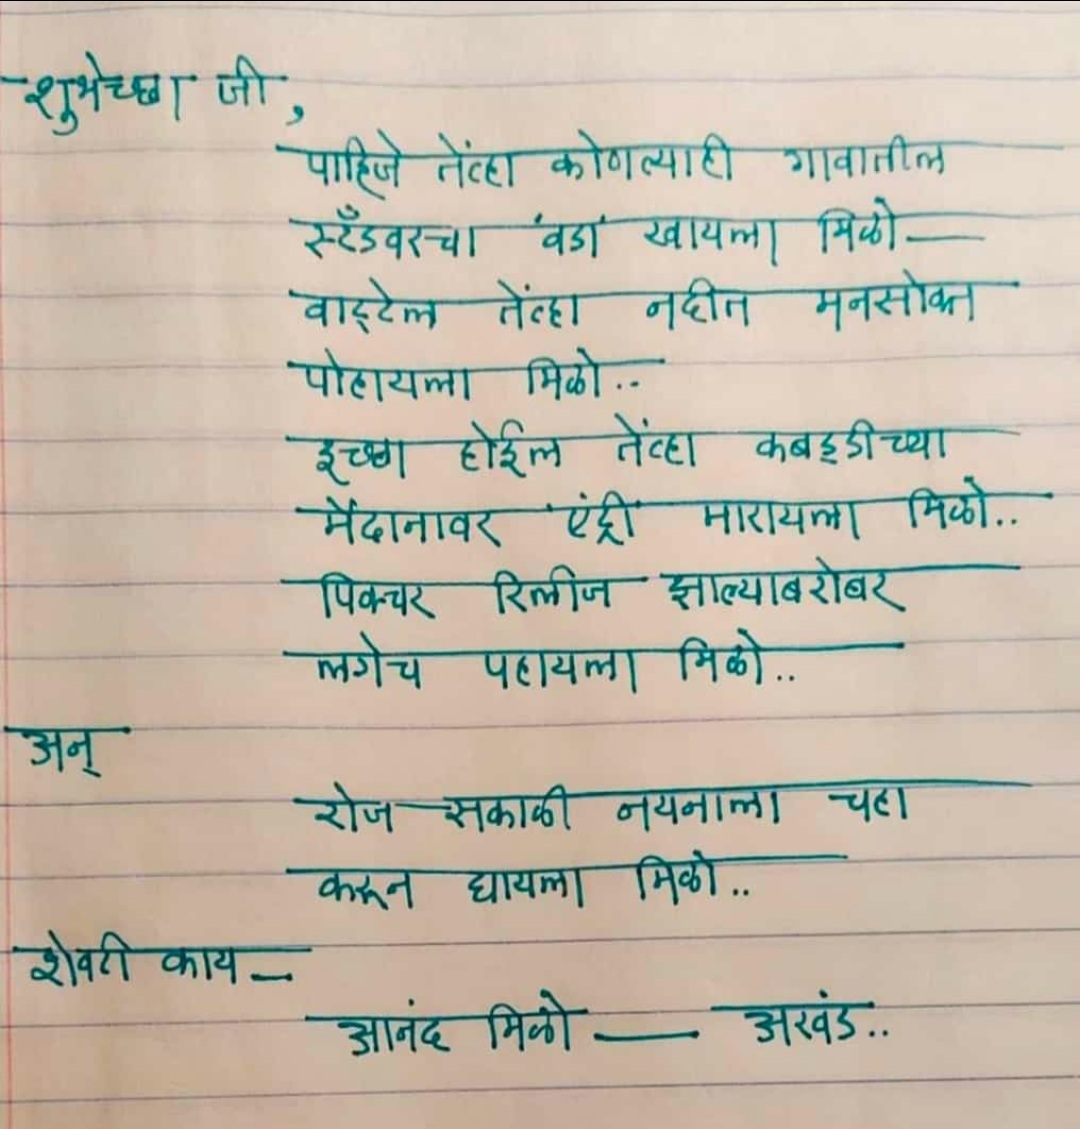 शुभेच्छा जी,
पाहिजे तेंव्हा कोणत्याही गावातील
स्टॅंडवरचा 'वडा' खायला मिळो—
वाट्टेल तेंव्हा नदीत मनसोक्त
पोहायला मिळो..
इच्छा होईल तेंव्हा कबड्डीच्या
मैदानावर 'एंट्री' मारायला मिळो..
पिक्चर रिलीज झाल्याबरोबर
लगेच पहायला मिळो..
अन्
रोज सकाळी नयनाला चहा
करून द्यायला मिळो..
शेवटी काय —
आनंद मिळो — अखंड..